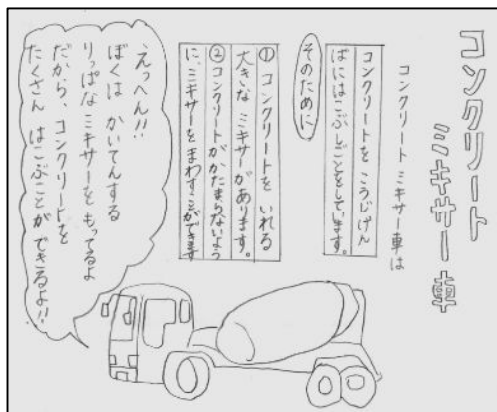 コンクリート
ミキサー車
コンクリートミキサー車は
コンクリートをこうじげん
ばにはこぶしごとをしています。
そのために
①コンクリートをいれる
大きなミキサーがあります。
②コンクリートがかたまらないよう
に、ミキサーをまわすことができます
えっへん!!
ぼくは かいてんする
りっぱなミキサーをもってるよ
だから、コンクリートを
たくさん はこぶことができるよ!!